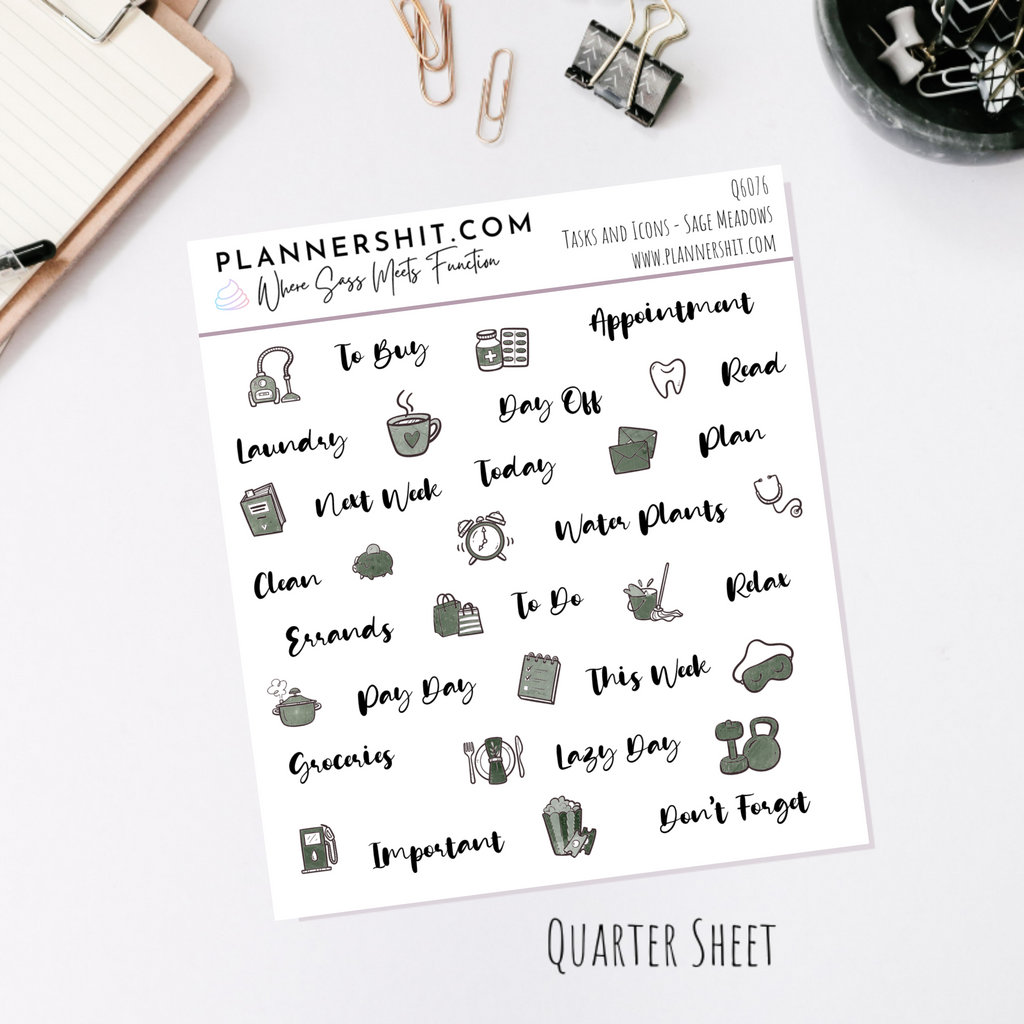 PLANNERSHIT.COM
Where Sass Meets Function
Q6076
Tasks and Icons - Sage Meadows
www.plannershit.com
To Buy
Appointment
Read
Laundry
Day Off
Plan
Next Week
Today
Water Plants
Clean
Relax
Errands
To Do
Pay Day
This Week
Groceries
Lazy Day
Important
Don't Forget
Quarter Sheet